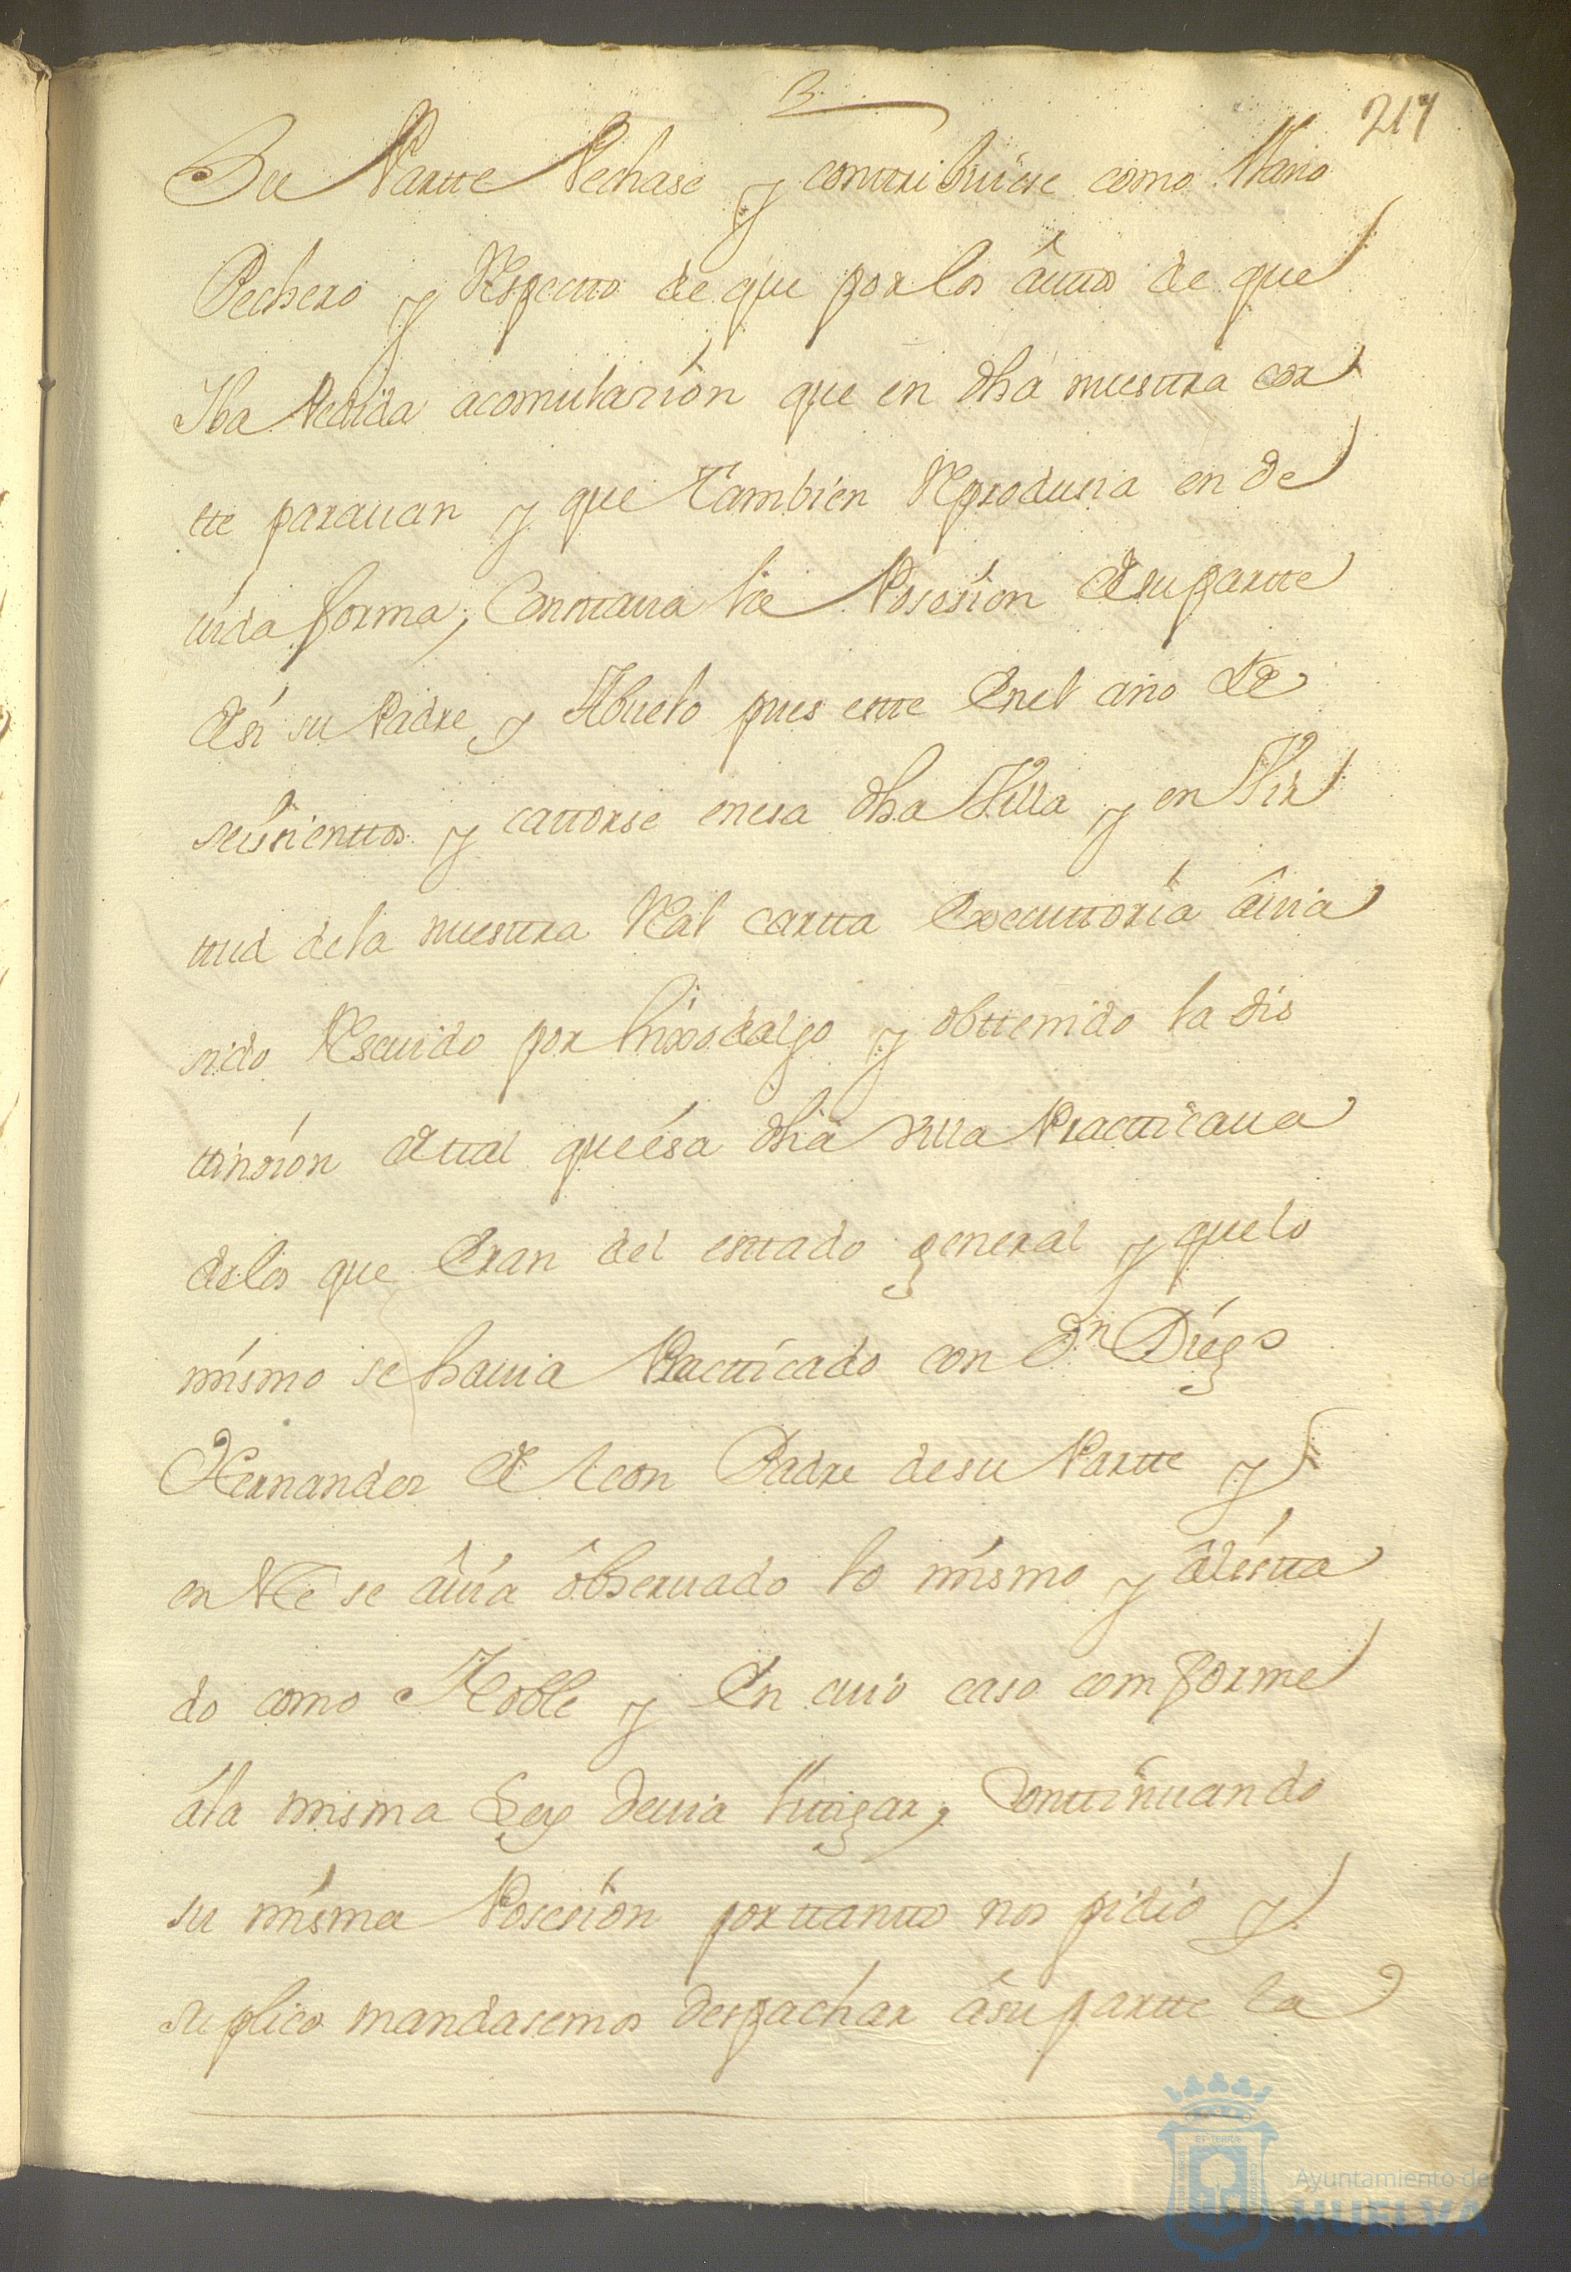 3
217
Su Partte Pechase y conttribuiese como llano
Pechero y Respectto de que por los âuttos de que
Iba Pedida acomulazion que en dha nuesttra cor
tte parauan y que tambien Reprodusia en de
uida forma, Consttaua la Posesion de su partte
de si su Padre y Abuelo pues estte en el año de
seissienttos y cattorse en esa dha Villa y en Vir
ttud de la nuesttra Real cartta Executtoria âuia
sido Resciuido por hixodalgo y obttenido la dis
ttinsion de ttal que ésa dha Villa Practticaua
de los que Eran del esttado general y que lo
mismo se hauia Practticado con Dn Diego
Hernandez de Leon Padre de su Partte y
en este se âuia ôbseruado lo mismo y âlistta
do como Noble y En cuio caso comforme
ála misma Ley deuia littigar, Conttinuando
su misma Posesion por ttantto nos pidio y
suplico mandasemos despachar âsu partte la
Ayuntamiento de
HUELVA